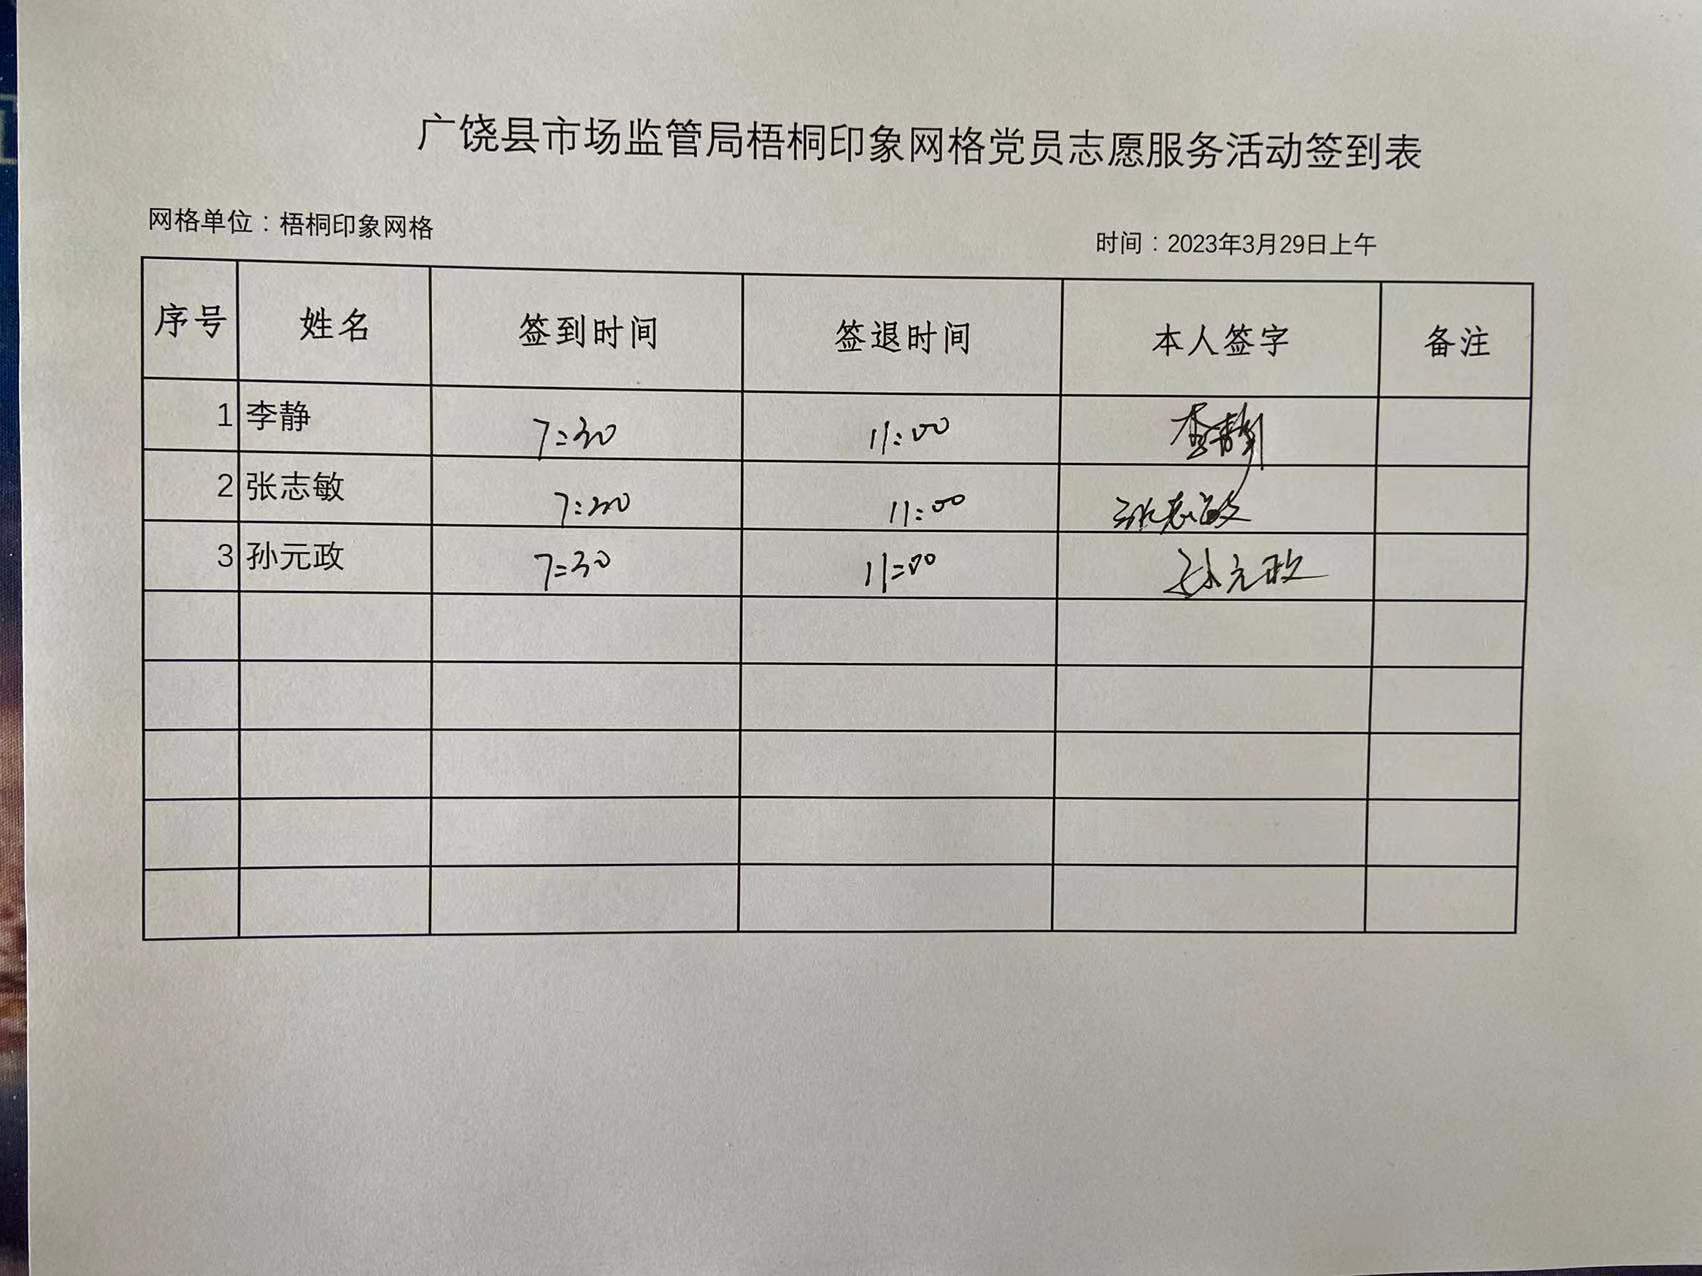 广饶县市场监管局梧桐印象网格党员志愿服务活动签到表
网格单位：梧桐印象网格
时间：2023年3月29日上午
序号 姓名 签到时间 签退时间 本人签字 备注
1 李静 7:30 11:00 李静
2 张志敏 7:30 11:00 张志敏
3 孙元政 7:30 11:00 孙元政